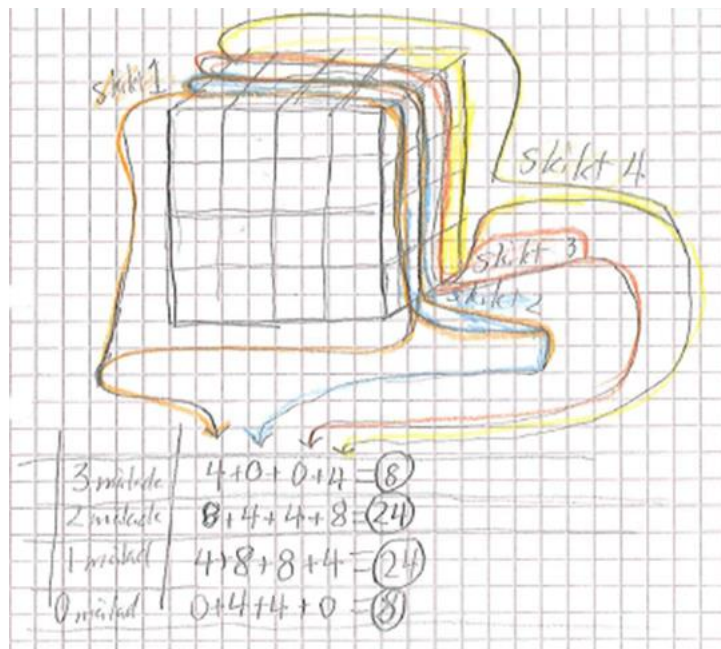 skikt 1
skikt 4
skikt 3
skikt 2
3 målade 4+0+0+4=8
2 målade 8+4+4+8=24
1 målad 4+8+8+4=24
0 målad 0+4+4+0=8